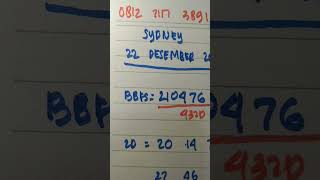 0812 7117 3891
SYDNEY
22 DESEMBER 2
BBFS = 210476
4320
2D = 20 14
27 46